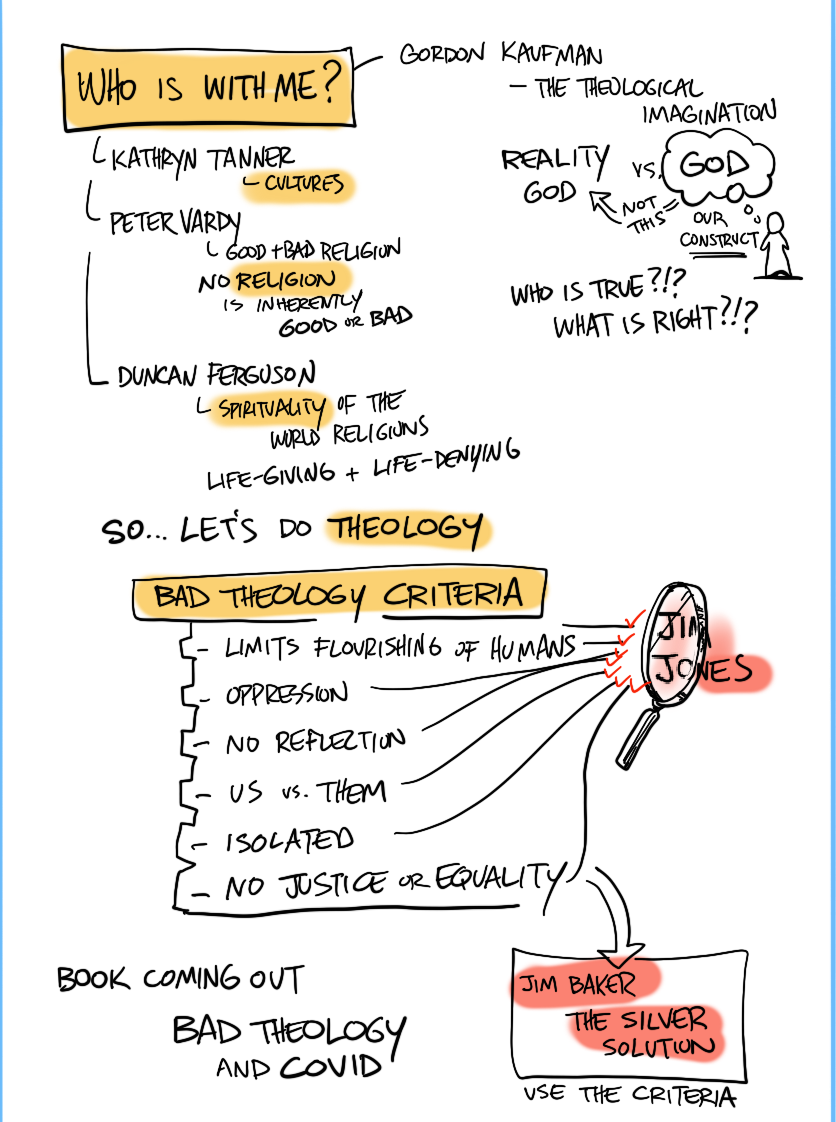 WHO IS WITH ME?
GORDON KAUFMAN
– THE THEOLOGICAL
IMAGINATION
REALITY
GOD
VS.
GOD
NOT
THIS
OUR
CONSTRUCT
WHO IS TRUE?!?
WHAT IS RIGHT?!?
KATHRYN TANNER
CULTURES
PETER VARDY
GOOD + BAD RELIGION
NO RELIGION
IS INHERENTLY
GOOD OR BAD
DUNCAN FERGUSON
SPIRITUALITY OF THE
WORLD RELIGIONS
LIFE-GIVING + LIFE-DENYING
SO... LET'S DO THEOLOGY
BAD THEOLOGY CRITERIA
– LIMITS FLOURISHING OF HUMANS
– OPPRESSION
– NO REFLECTION
– US VS. THEM
– ISOLATED
– NO JUSTICE OR EQUALITY
JIM
JONES
BOOK COMING OUT
BAD THEOLOGY
AND COVID
JIM BAKER
THE SILVER
SOLUTION
USE THE CRITERIA